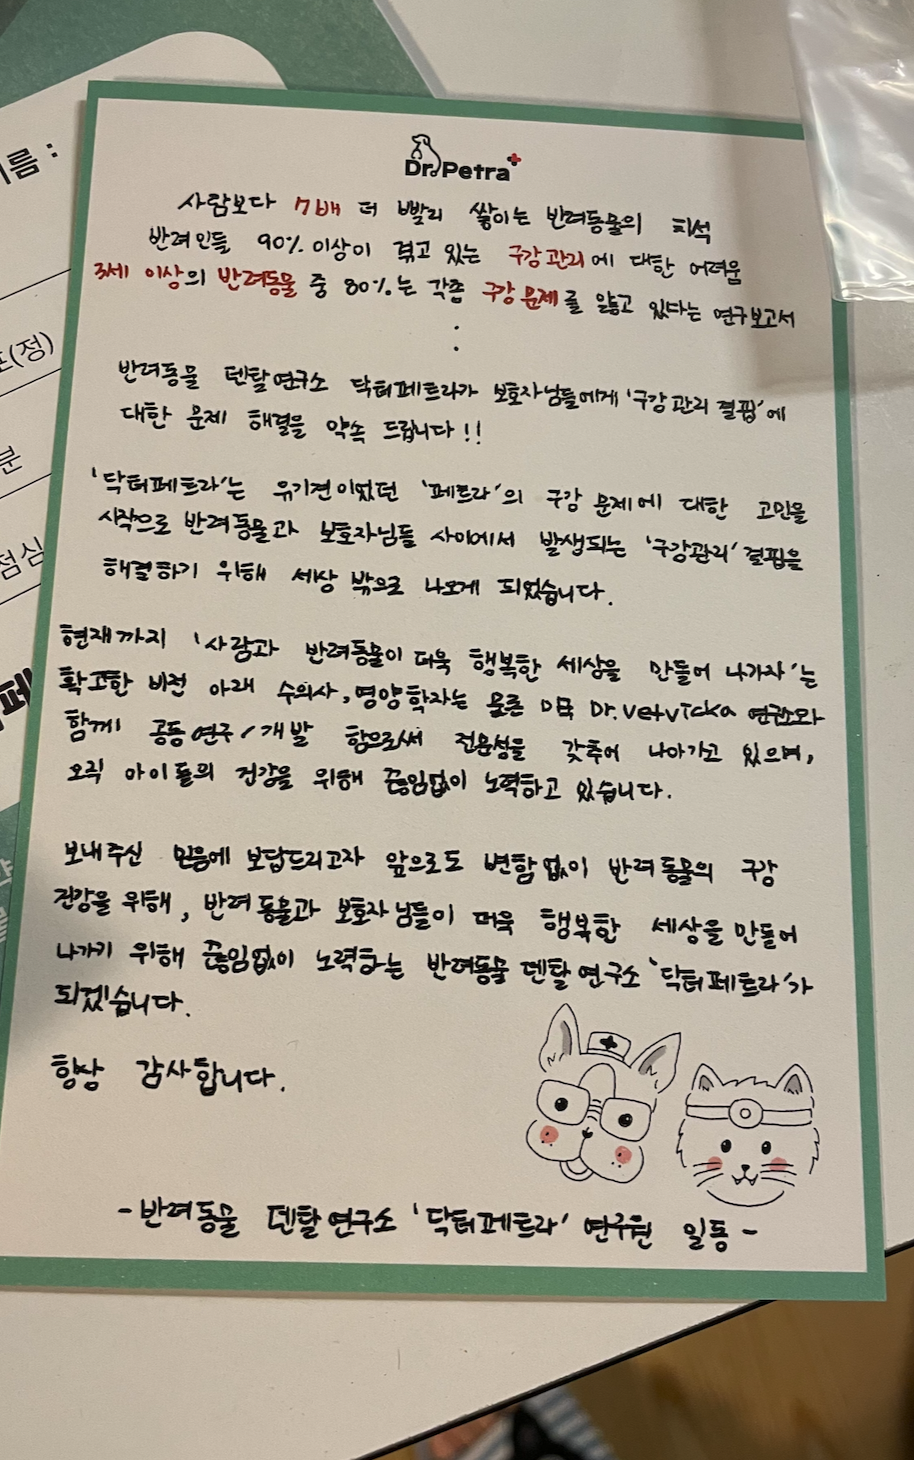 Dr.Petra
사람보다 7배 더 빨리 쌓이는 반려동물의 치석
반려인들 90% 이상이 겪고 있는 구강관리에 대한 어려움
3세 이상의 반려동물 중 80%는 각종 구강문제를 앓고 있다는 연구보고서
반려동물 덴탈연구소 닥터페트라가 보호자님들에게 '구강관리 결핍'에
대한 문제 해결을 약속 드립니다!!
'닥터페트라'는 유기견이었던 '페트라'의 구강 문제에 대한 고민을
시작으로 반려동물과 보호자님들 사이에서 발생되는 '구강관리' 결핍을
해결하기 위해 세상 밖으로 나오게 되었습니다.
현재까지 '사람과 반려동물이 더욱 행복한 세상을 만들어 나가자'는
확고한 비전 아래 수의사, 영양학자는 물론 Dr.vetvicka 연구소와
함께 공동연구/개발 함으로써 전문성을 갖추어 나아가고 있으며,
오직 아이들의 건강을 위해 끊임없이 노력하고 있습니다.
보내주신 믿음에 보답드리고자 앞으로도 변함없이 반려동물의 구강
건강을 위해, 반려동물과 보호자님들이 더욱 행복한 세상을 만들어
나가기 위해 끊임없이 노력하는 반려동물 덴탈연구소 '닥터페트라'가
되겠습니다.
항상 감사합니다.
-반려동물 덴탈연구소 '닥터페트라' 연구원 일동-
름 :
(정)
분
점심
페